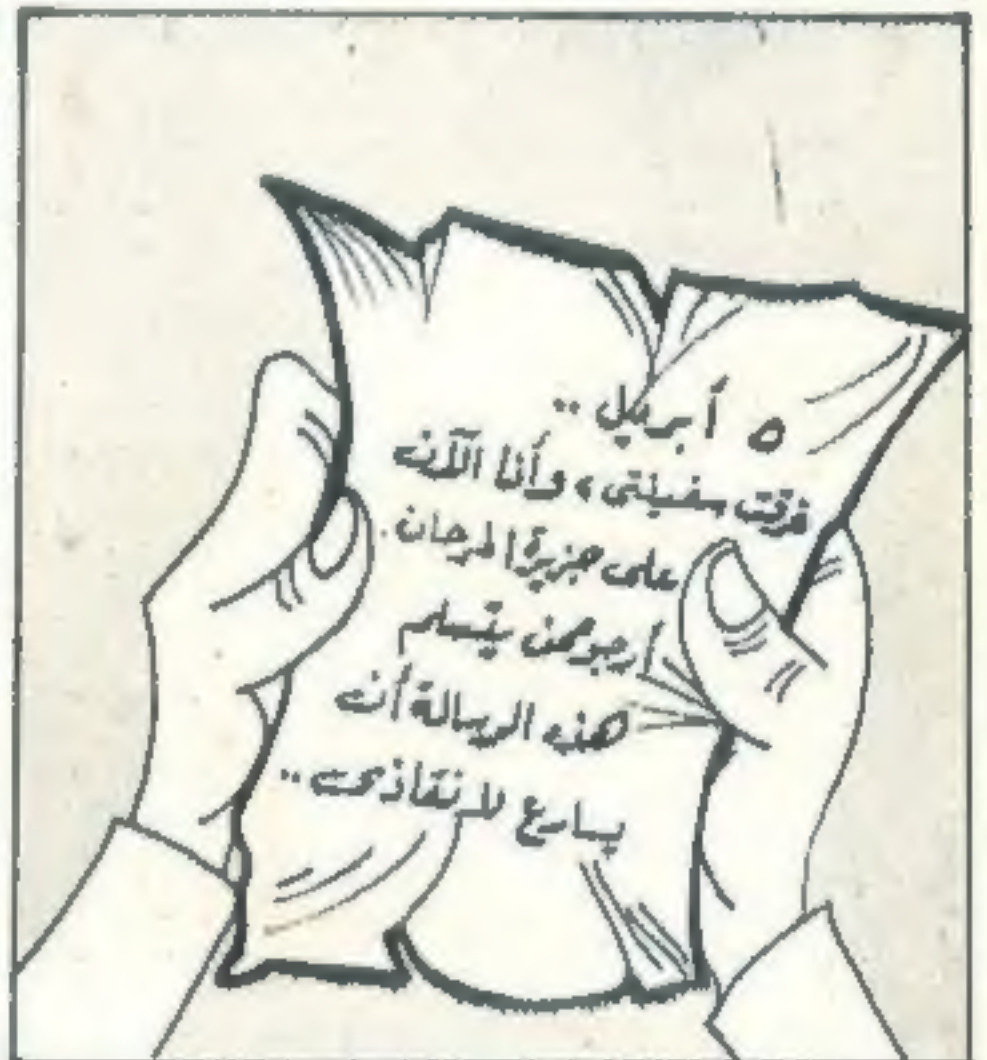 ٥ أبريل ..
غرقت سفينتى ، وأنا الآن
على جزيرة المرجان .
أرجو ممن يتسلم
هذه الرسالة أن
يسارع لإنقاذى ..